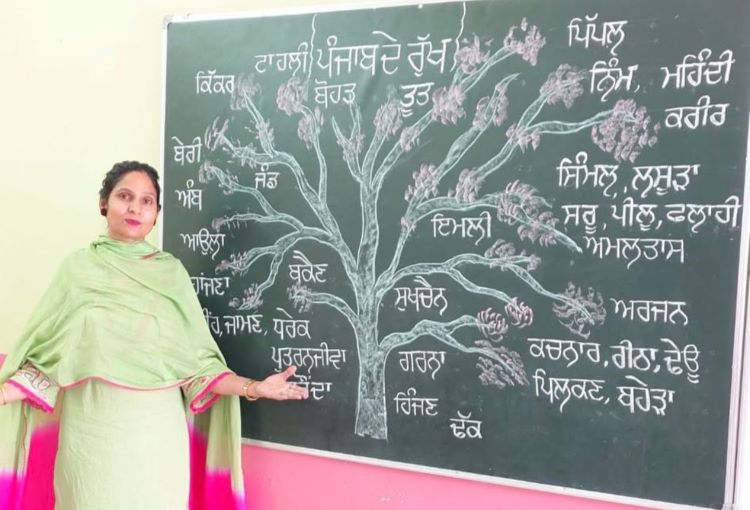 ਪੰਜਾਬ ਦੇ ਰੁੱਖ
ਟਾਹਲੀ
ਪਿੱਪਲ
ਕਿੱਕਰ
ਬੋਹੜ
ਤੂਤ
ਨਿੰਮ, ਮਹਿੰਦੀ
ਕਰੀਰ
ਬੇਰੀ
ਜੰਡ
ਸਿੰਮਲ, ਲਸੂੜਾ
ਅੰਬ
ਸਰੂ, ਪੀਲੂ, ਫਲਾਹੀ
ਇਮਲੀ
ਆਉਲਾ
ਅਮਲਤਾਸ
ਬਕੈਣ
ਸੁਖਚੈਨ
ਅਰਜਨ
ਜਾਮਣ, ਧਰੇਕ
ਪੁਤਰਨਜੀਵਾ
ਗਰਨਾ
ਕਚਨਾਰ, ਰੀਠਾ, ਢੇਊ
ਪਿਲਕਣ, ਬਹੇੜਾ
ਹਿੰਜਣ
ਢੱਕ